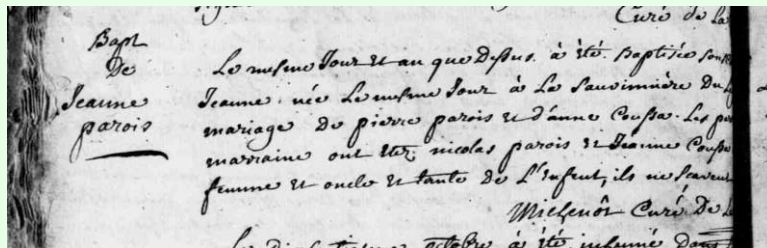 Curé de la
Bapt
De
Jeanne
parois
Le mesme Jour et an que Dessus. à été Baptisée sous
Jeanne née Le mesme Jour à La Sauvinnière Du
mariage de pierre parois et d'anne Coussa. Les
marraine ont été nicolas parois et Jeanne Coussa
femme et oncle et tante de L'Enfent, ils ne scavent
Michenôt Curé De
octobre à été inhumé dans